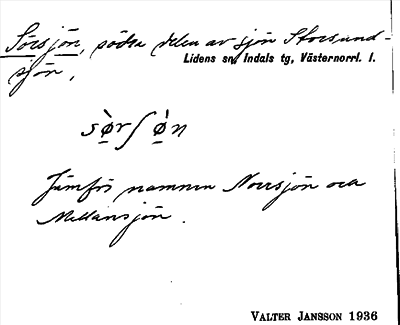 Sörsjön, södra delen av sjön Storsund-
Lidens sn, Indals tg, Västernorrl. l.
sjön,
sø̀rʃø̀n
Jämför namnen Norrsjön och
Mellansjön.
VALTER JANSSON 1936